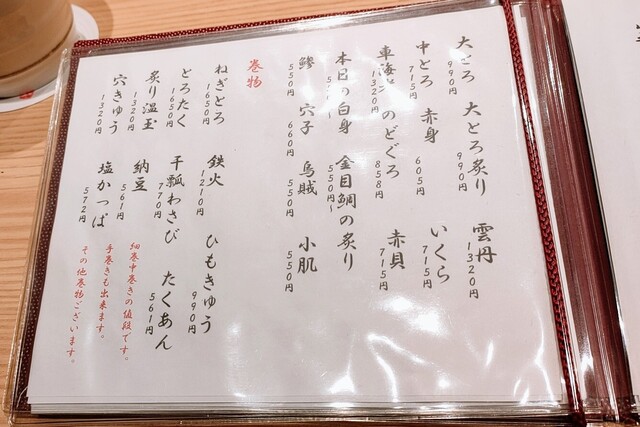 大とろ
990円
大とろ炙り
990円
雲丹
1320円
中とろ
715円
赤身
605円
いくら
715円
車海
1320円
のどぐろ
858円
赤貝
715円
本日の白身
金目鯛の炙り
550円〜
鯵
550円
穴子
660円
烏賊
550円
小肌
550円
巻物
ねぎとろ
1650円
鉄火
1210円
ひもきゅう
990円
とろたく
1650円
干瓢わさび
770円
たくあん
561円
炙り温玉
1320円
納豆
561円
穴きゅう
1320円
塩かっぱ
572円
細巻中巻きの値段です。
手巻きも出来ます。
その他巻物ございます。